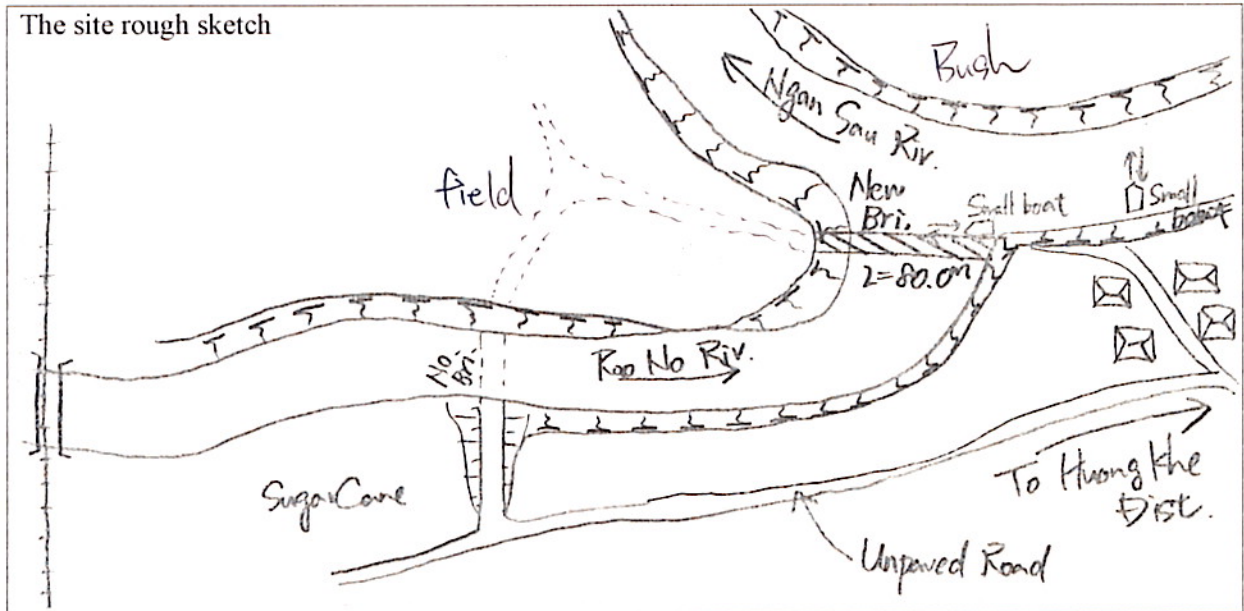 The site rough sketch
Bush
Ngan Sau Riv.
field
New
Bri.
Small boat
Small
boat
L=80.0m
No
Bri.
Roo No Riv.
Sugar Cane
To Huong Khe
Dist.
Unpaved Road